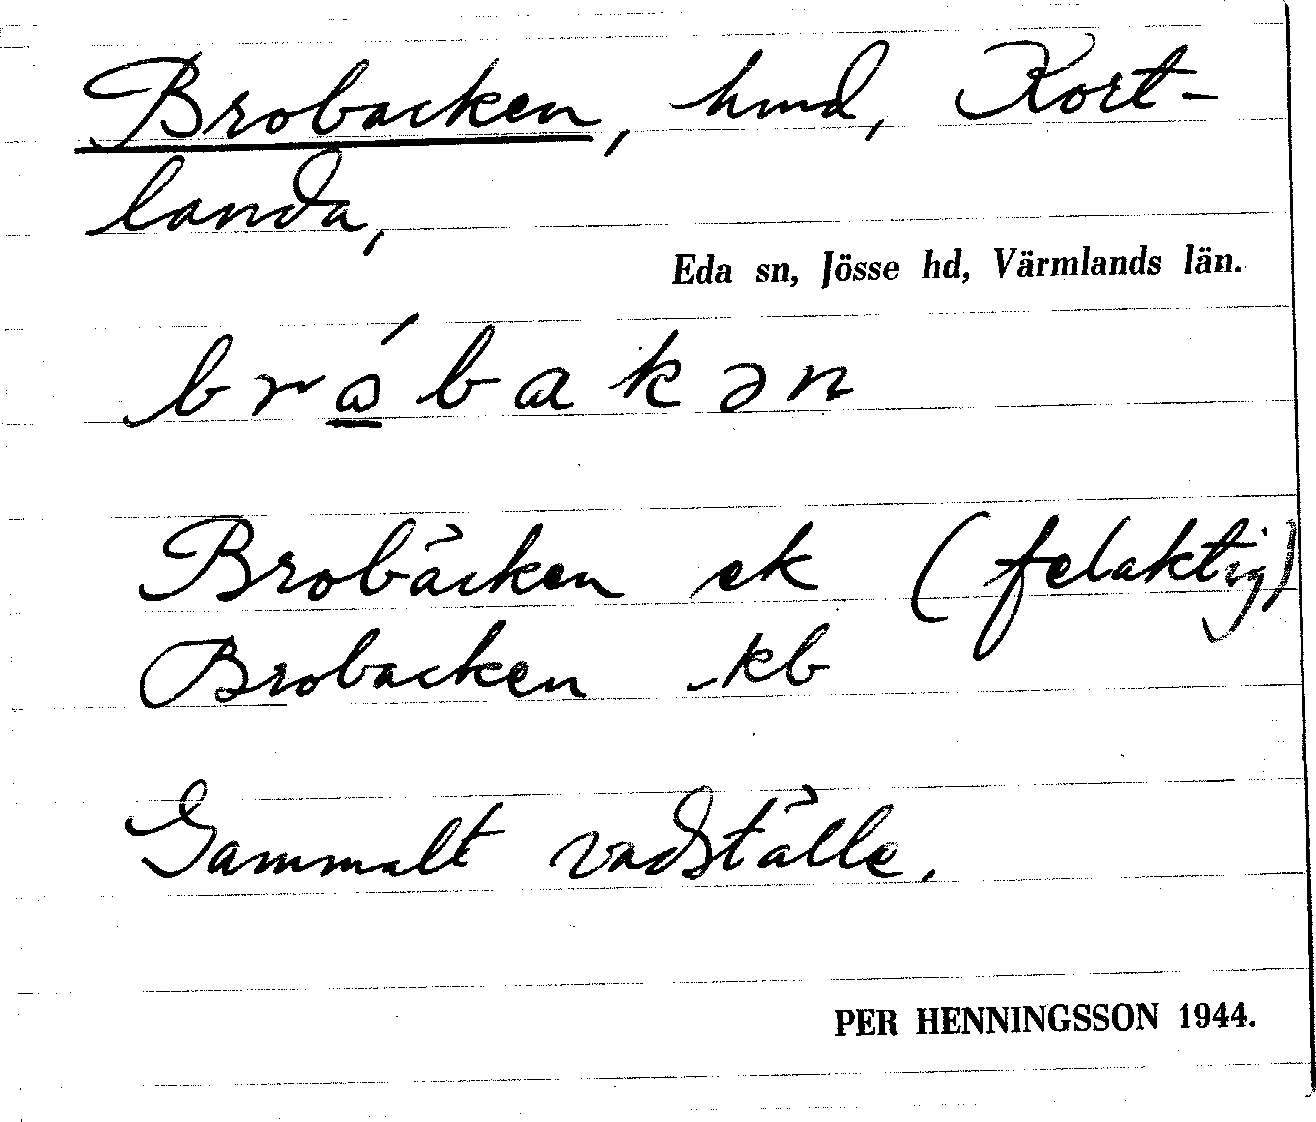 Brobacken, hmd, Kort-
landa,
Eda sn, Jösse hd, Värmlands län.
brǻbakən
Brobäcken ek (felaktig)
Brobacken kb
Gammalt vadställe.
PER HENNINGSSON 1944.